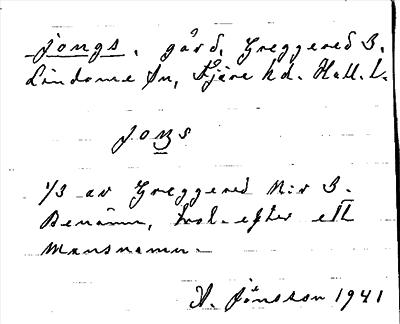 Jongs, gård, Greggered B.
Lindome sn, Fjäre hd. Hall. l.
joŋs
1/3 av Greggered N:r 3.
Benämn. trol. efter ett
mansnamn.
A. Jönsson 1941